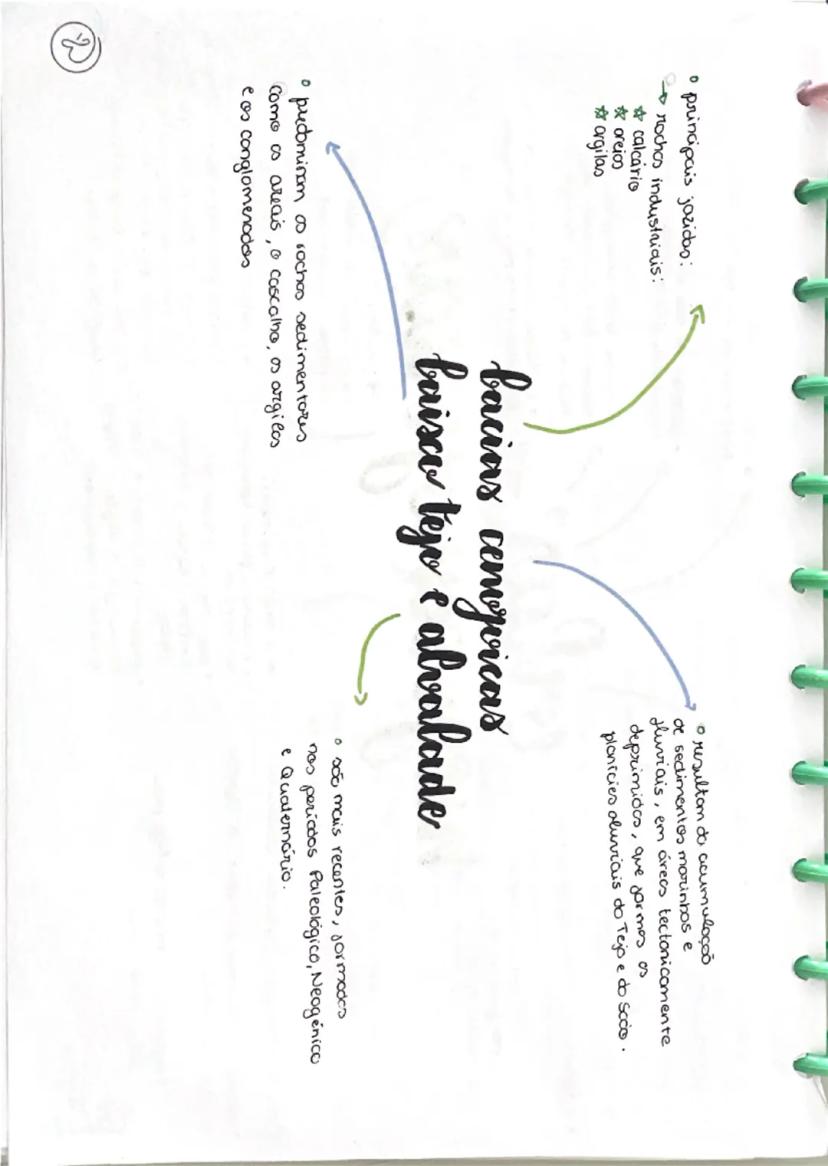 bacias cenozoicas
baixo tejo e alvalade
° principais jazidas:
→ rochas industriais:
☆ calcário
☆ areias
☆ argilas
° resultam da acumulação
de sedimentos marinhos e
fluviais, em áreas tectonicamente
deprimidas, que formas as
planícies aluviais do Tejo e do Sado.
° predominam as rochas sedimentares
como as areais, o cascalho, as argilas
e os conglomerados
° são mais recentes, formadas
nos períodos Paleológico, Neogénico
e Quaternário.
2